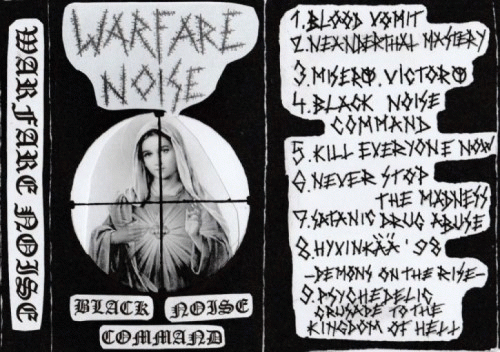 WARFARE NOISE
WARFARE
NOISE
BLACK NOISE
COMMAND
1. BLOOD VOMIT
2. NEANDERTHAL MASTERY
3. MISERO. VICTORO
4. BLACK NOISE
COMMAND
5. KILL EVERYONE NOW
6. NEVER STOP
THE MADNESS
7. SATANIC DRUG ABUSE
8. HYVINKÄÄ '98
-DEMONS ON THE RISE-
9. PSYCHEDELIC
CRUSADE TO THE
KINGDOM OF HELL